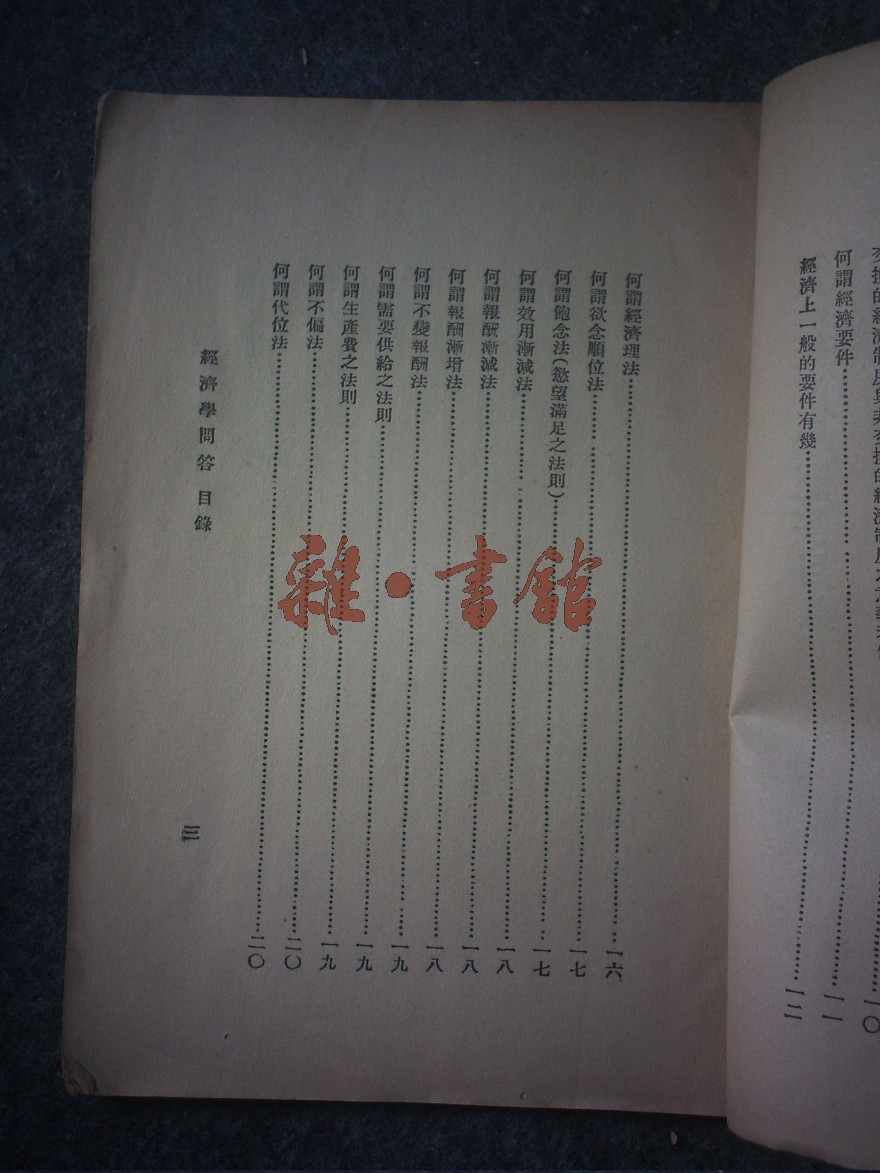 一〇
何謂經濟要件……一一
經濟上一般的要件有幾……一二
何謂經濟理法……一六
何謂欲念順位法……一七
何謂飽念法(慾望滿足之法則)……一七
何謂效用漸減法……一八
何謂報酬漸減法……一八
何謂報酬漸增法……一八
何謂不變報酬法……一九
何謂需要供給之法則……一九
何謂生產費之法則……一九
何謂不偏法……二〇
何謂代位法……二〇
經濟學問答 目錄
三
雜·書館